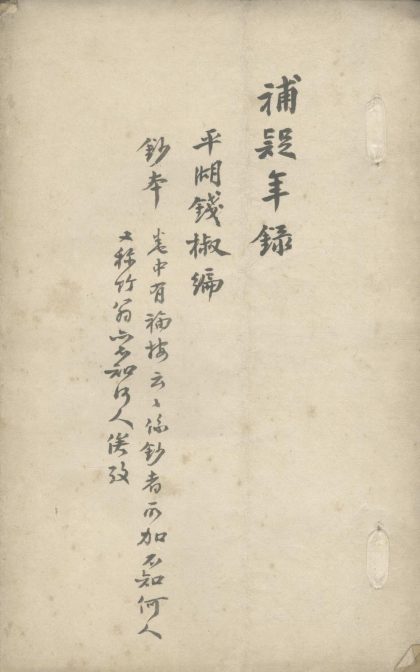 補疑年錄
平湖錢椒編
鈔本 卷中有福按云〻係鈔者所加不知何人
又稱竹翁亦不知何人俟攷